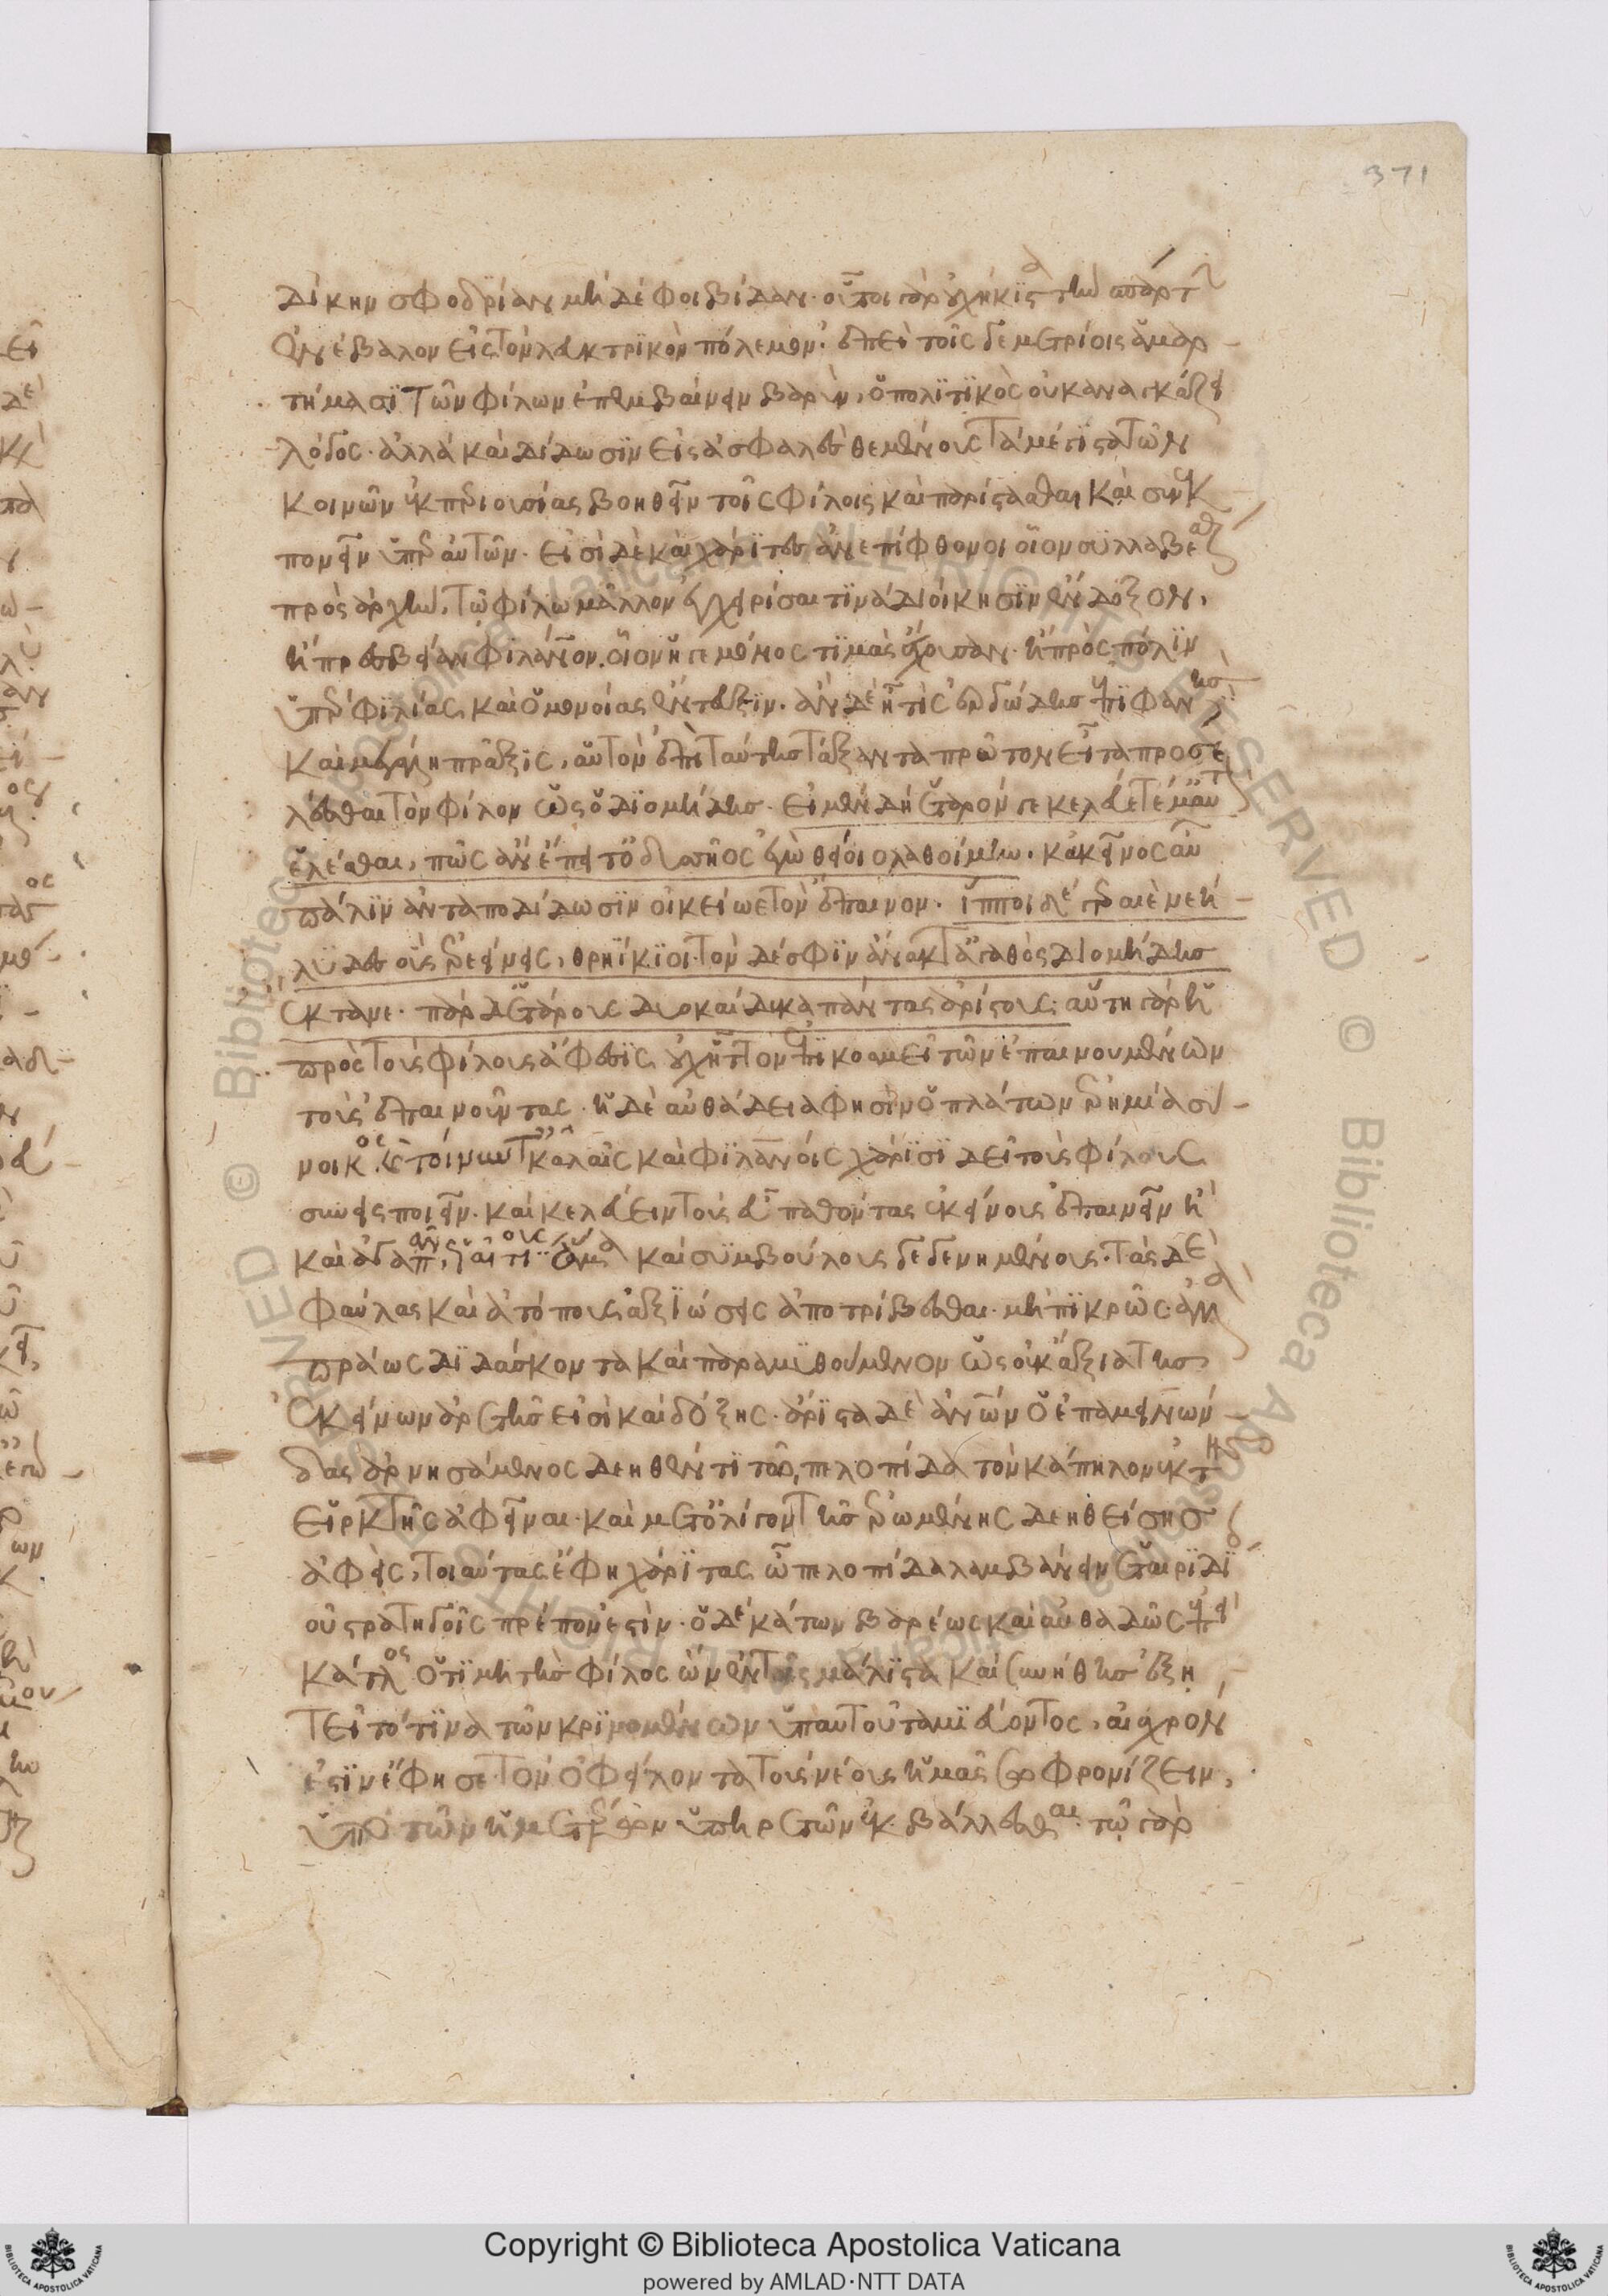 371
δίκην σφοδρίαν μὴ δὲ φοιβίδαν. οὗτοι γὰρ οὐχ ἥκιστα τὴν σπάρτην
ἐνέβαλον εἰς τὸν λευκτρικὸν πόλεμον. ἐπεὶ τοῖς γε μετρίοις ἁμαρ-
τήμασι τῶν φίλων ἐπεμβαίνειν βαρὺν, ὁ πολιτικὸς οὐκ ἀναγκάζει
λόγος. ἀλλὰ καὶ δίδωσιν εἰς ἀσφαλὲς θεμένους τὰ μέγιστα τῶν
κοινῶν ἐκ περιουσίας βοηθεῖν τοῖς φίλοις καὶ παρίστασθαι καὶ συνεκ
πονεῖν ὑπὲρ αὐτῶν. εἰσὶ δὲ καὶ χάριτες ἀνεπίφθονοι οἷον συλλαβέσθαι
πρὸς ἀρχὴν, τῷ φίλῳ μᾶλλον ἐγχειρίσαι τινὰ διοίκησιν ἔνδοξον,
ἢ πρεσβείαν φιλάνθρωπον. οἷον ἡγεμόνος τιμὰς ἔχουσαν. ἢ πρὸς πόλιν
ὑπὲρ φιλίας καὶ ὁμονοίας ἔντευξιν. ἂν δὲ ᾖ τις ἐργώδης ἐπιφανὴς
καὶ μεγάλη πρᾶξις, αὑτὸν ἐπὶ ταύτης τάξαντα πρῶτον εἶτα προσε
λέσθαι τὸν φίλον ὡς ὁ διομήδης. εἰ μὲν δὴ ἕταρόν γε κελεύετέ μ' αὐτὸν
ἑλέσθαι, πῶς ἂν ἔπειτ' ὀδυσῆος ἐγὼ θείοιο λαθοίμην. κἀκεῖνος αὖ
πάλιν ἀνταποδίδωσιν οἰκείως τὸν ἔπαινον. ἵπποι δὲ γεραιὲ νεή-
λυδες οὓς ἐρεείνεις, θρηΐκιοι. τὸν δέ σφιν ἄνακτ' ἀγαθὸς διομήδης
ἔκτανε. πὰρ δ' ἑτάρους δυοκαίδεκα πάντας ἀρίστους. αὕτη γὰρ ἡ
πρὸς τοὺς φίλους ὕφεσις οὐχ ἧττον ἐπικοσμεῖ τῶν ἐπαινουμένων
τοὺς ἐπαινοῦντας. ἡ δὲ αὐθάδεια φησὶν ὁ πλάτων ἐρημία σύ-
νοικος. ἔτι τοίνυν ταῖς καλαῖς καὶ φιλανθρώποις χάρισι δεῖ τοὺς φίλους
συνεισποιεῖν. καὶ κελεύειν τοὺς εὖ παθόντας ἐκείνους ἐπαινεῖν
καὶ ἀγαπᾶν, ὡς αἰτίους ἅμα καὶ συμβούλους γεγενημένους. τὰς δὲ
φαύλας καὶ ἀτόπους ἀξιώσεις ἀποτρίβεσθαι. μὴ πικρῶς ἀλλὰ
πράως διδάσκοντα καὶ παραμυθούμενον ὡς οὐκ ἄξιαι τῆς
ἐκείνων ἀρετῆς εἰσὶ καὶ δόξης. ἄριστα δὲ ἀνθρώπων ὁ ἐπαμεινών-
δας ἀρνησάμενος δεηθέντι τῷ πελοπίδᾳ τὸν κάπηλον ἐκ τῆς
εἱρκτῆς ἀφεῖναι. καὶ μετ' ὀλίγον τῆς ἐρωμένης δεηθείσης
ἀφεὶς, τοιαύτας ἔφη χάριτας ὦ πελοπίδα λαμβάνειν ἑταιριδίοις
οὐ στρατηγοῖς πρέπον ἐστίν. ὁ δὲ κάτων βαρέως καὶ αὐθαδῶς ἐπεὶ
κάτλος ὁ τιμητὴς φίλος ὢν ἐν τοῖς μάλιστα καὶ συνήθης ἐξῃ
τεῖτό τινα τῶν κρινομένων ὑπ' αὐτοῦ ταμιεύοντος, αἰσχρόν
ἐστιν ἔφησε τὸν ὀφείλοντα τοὺς νέους ἡμᾶς σωφρονίζειν,
ὑπὸ τῶν ἡμετέρων ὑπηρετῶν ἐκβάλλεσθαι. τῷ γὰρ
Copyright © Biblioteca Apostolica Vaticana
powered by AMLAD·NTT DATA